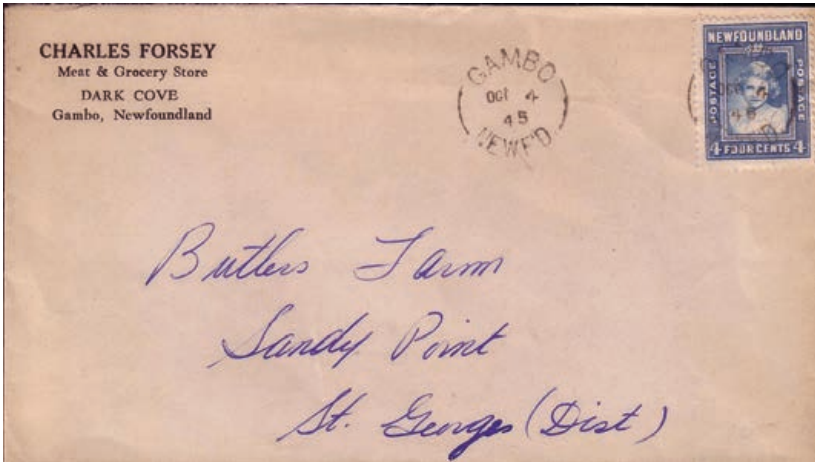 CHARLES FORSEY
Meat & Grocery Store
DARK COVE
Gambo, Newfoundland
GAMBO
OCT 4
45
NEWF'D
NEWFOUNDLAND
POSTAGE
POSTAGE
4 FOUR CENTS 4
Butlers Farm
Sandy Point
St. Georges (Dist)